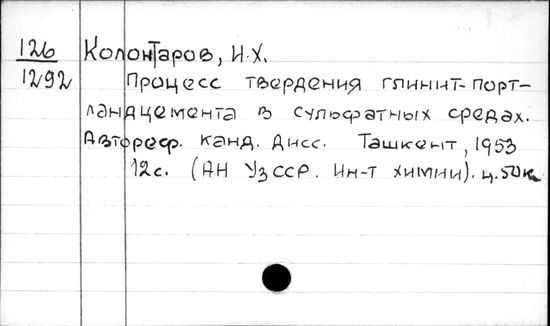 126 Колонтаров, И.Х.
1292 Процесс твердения глинит-порт-
ландцемента в сульфатных средах.
Автореф. канд. дисс. Ташкент, 1953
12с. (АН УзССР. Ин-т химии). ц. 50к